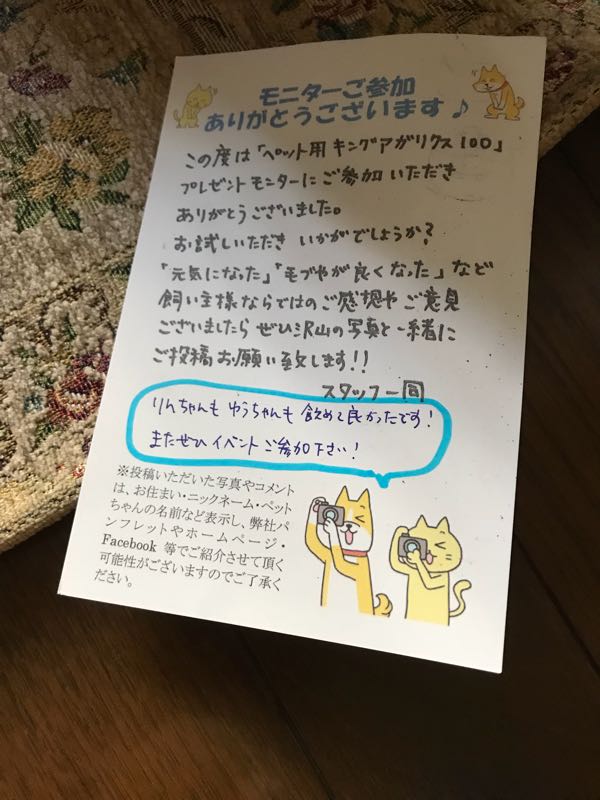 モニターご参加
ありがとうございます♪
この度は「ペット用 キングアガリクス100」
プレゼントモニターにご参加いただき
ありがとうございました。
お試しいただき いかがでしょうか?
「元気になった」「モプやが良くなった」など
飼い主様ならではのご感想や ご意見
ございましたら ぜひ沢山の写真と一緒に
ご投稿お願い致します!!
スタッフ一同
りんちゃんも ゆうちゃんも 飲めて良かったです!
またぜひ イベントご参加下さい!
※投稿いただいた写真やコメント
は、お住まい・ニックネーム・ペット
ちゃんの名前など表示し、弊社パ
ンフレットやホームページ・
Facebook 等でご紹介させて頂く
可能性がございますのでご了承く
ださい。